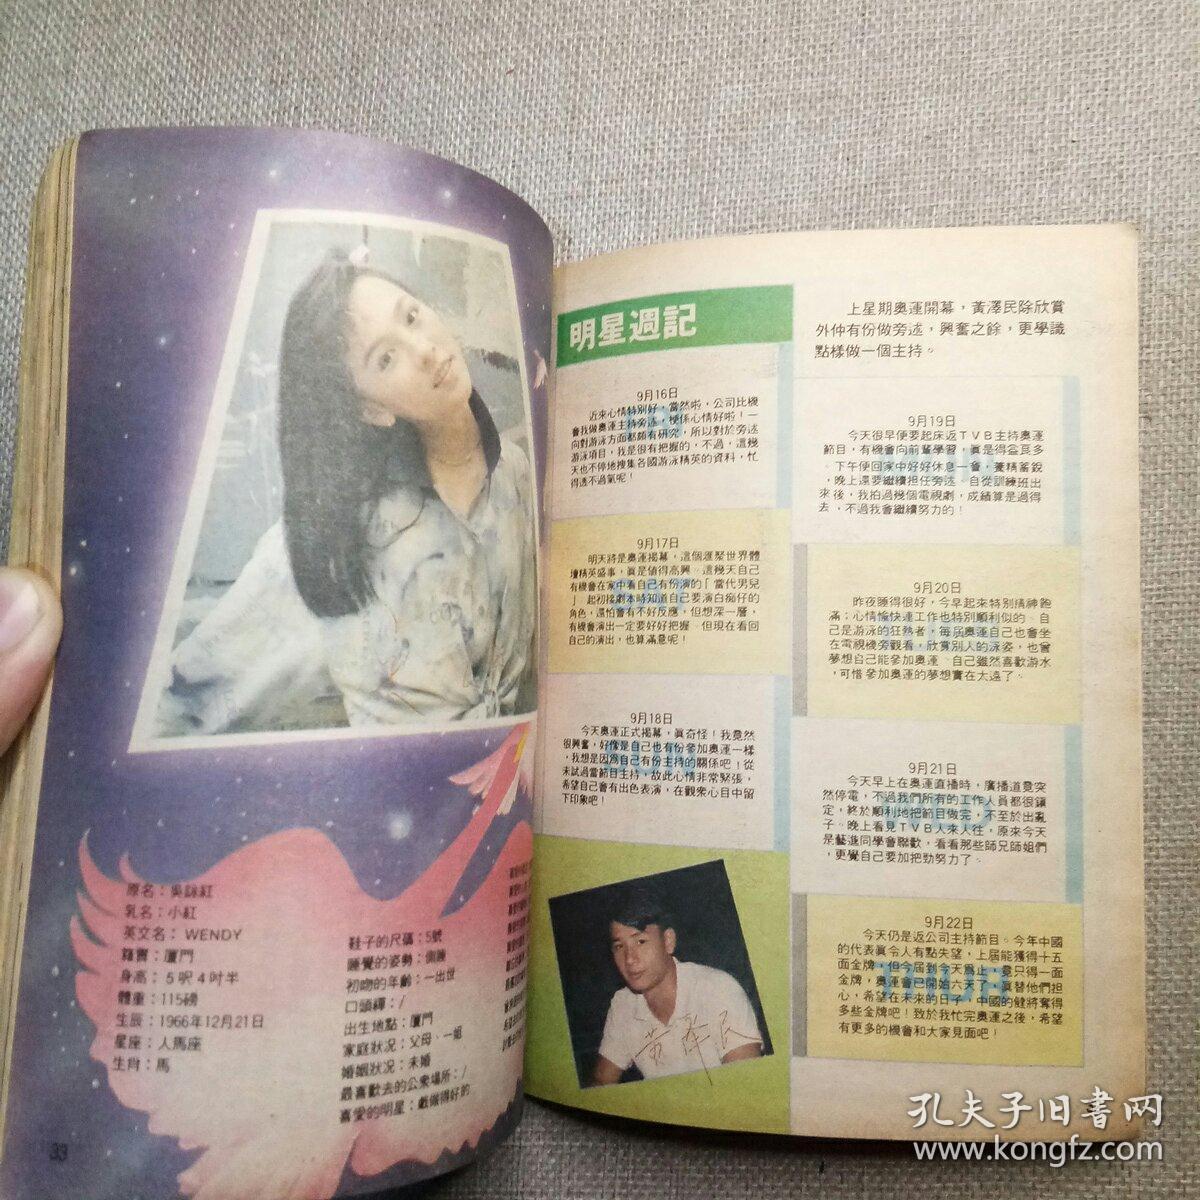 原名：吳詠紅
乳名：小紅
英文名：WENDY
籍貫：厦門
身高：５呎４吋半
體重：115磅
生辰：1966年12月21日
星座：人馬座
生肖：馬
鞋子的尺碼：5號
睡覺的姿勢：側睡
初吻的年齡：一出世
口頭禪：/
出生地點：厦門
家庭狀況：父母、一姐
婚姻狀況：未婚
最喜歡去的公衆場所：/
喜愛的明星：戲做得好的
33
明星週記
上星期奧運開幕，黃澤民除欣賞
外仲有份做旁述，興奮之餘，更學識
點樣做一個主持。
9月16日
近來心情特別好，當然啦，公司比機
會我做奧運主持旁述，梗係心情好啦！一
向對游泳方面都頗有研究，所以對於旁述
游泳項目，我是很有把握的，不過，這幾
天也不停地搜集各國游泳精英的資料，忙
得透不過氣呢！
9月17日
明天將是奧運揭幕，這個滙聚世界體
壇精英盛事，眞是値得高興。這幾天自己
有機會在家中看自己有份演的「當代男兒
」，起初接劇本時知道自己要演白痴仔的
角色，還怕會有不好反應，但想深一層，
有機會演出一定要好好把握。但現在看回
自己的演出，也算滿意呢！
9月18日
今天奧運正式揭幕，眞奇怪！我竟然
很興奮，好像是自己也有份參加奧運一樣
，我想是因爲自己有份主持的關係吧！從
未試過當節目主持，故此心情非常緊張，
希望自己會有出色表演，在觀衆心目中留
下印象吧！
黃澤民
9月19日
今天很早便要起床返ＴＶＢ主持奧運
節目，有機會向前輩學習，眞是得益良多
。下午便回家中好好休息一會，養精蓄銳
，晚上還要繼續担任旁述。自從訓練班出
來後，我拍過幾個電視劇，成績算是過得
去，不過我會繼續努力的！
9月20日
昨夜睡得很好，今早起來特別精神飽
滿；心情愉快連工作也特別順利似的。自
己是游泳的狂熱者，每屆奧運自己也會坐
在電視機旁觀看，欣賞別人的泳姿，也曾
夢想自己能參加奧運。自己雖然喜歡游水
，可惜參加奧運的夢想實在太遠了。
9月21日
今天早上在奧運直播時，廣播道竟突
然停電，不過我們所有的工作人員都很鎭
定，終於順利地把節目做完，不至於出亂
子。晚上看見ＴＶＢ人來人往，原來今天
是藝進同學會聯歡，看看那些師兄師姐們
，更覺自己要加把勁努力了。
9月22日
今天仍是返公司主持節目。今年中國
的代表眞令人有點失望，上屆能獲得十五
面金牌，但今屆到今天爲止，竟只得一面
金牌，奧運會已開始六天了，眞替他們担
心，希望在未來的日子，中國的健將奪得
多些金牌吧！致於我忙完奧運之後，希望
有更多的機會和大家見面吧！
孔夫子旧書网
www.kongfz.com